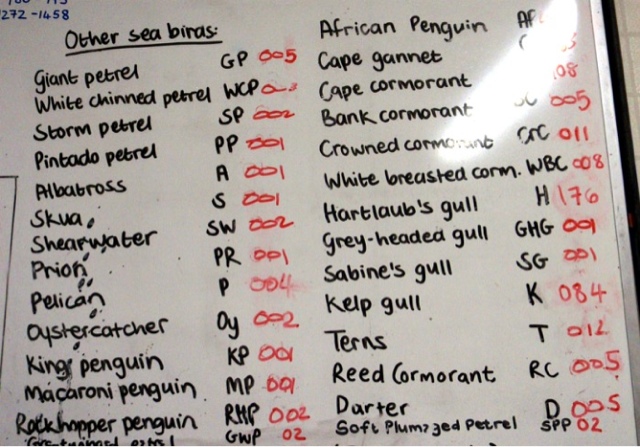 272-1458
Other sea biras:
Giant petrel GP 005
White chinned petrel WCP
Storm petrel SP 002
Pintado petrel PP 001
Albatross A 001
Skua S 001
Shearwater SW 002
Prion PR 001
Pelican P 004
Oystercatcher Oy 002
King penguin KP 001
Macaroni penguin MP 001
Rockhopper penguin RHP 002
GWP 02
African Penguin AP
Cape gannet
Cape cormorant 08
Bank cormorant 005
Crowned cormorant CrC 011
White breasted corm. WBC 008
Hartlaub's gull H 176
Grey-headed gull GHG 001
Sabine's gull SG 001
Kelp gull K 084
Terns T 012
Reed Cormorant RC 005
Darter D 005
Soft Plumaged Petrel SPP 02